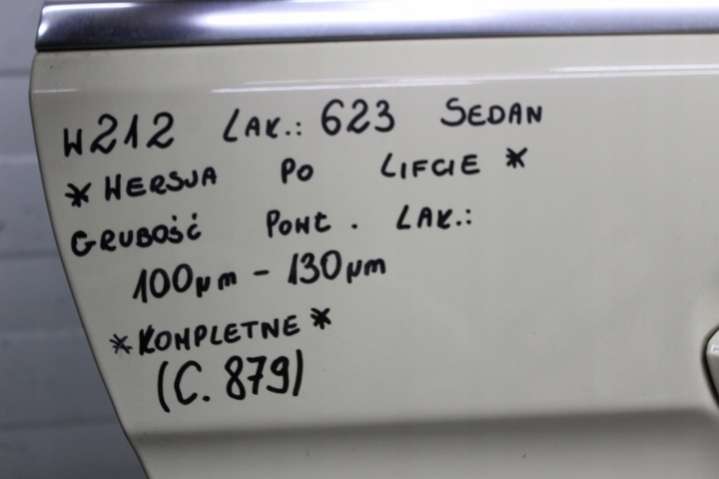 W212 LAK.: 623 SEDAN
* WERSJA PO LIFCIE *
GRUBOŚĆ POWŁ. LAK.:
100µm - 130µm
*KOMPLETNE*
(C. 879)